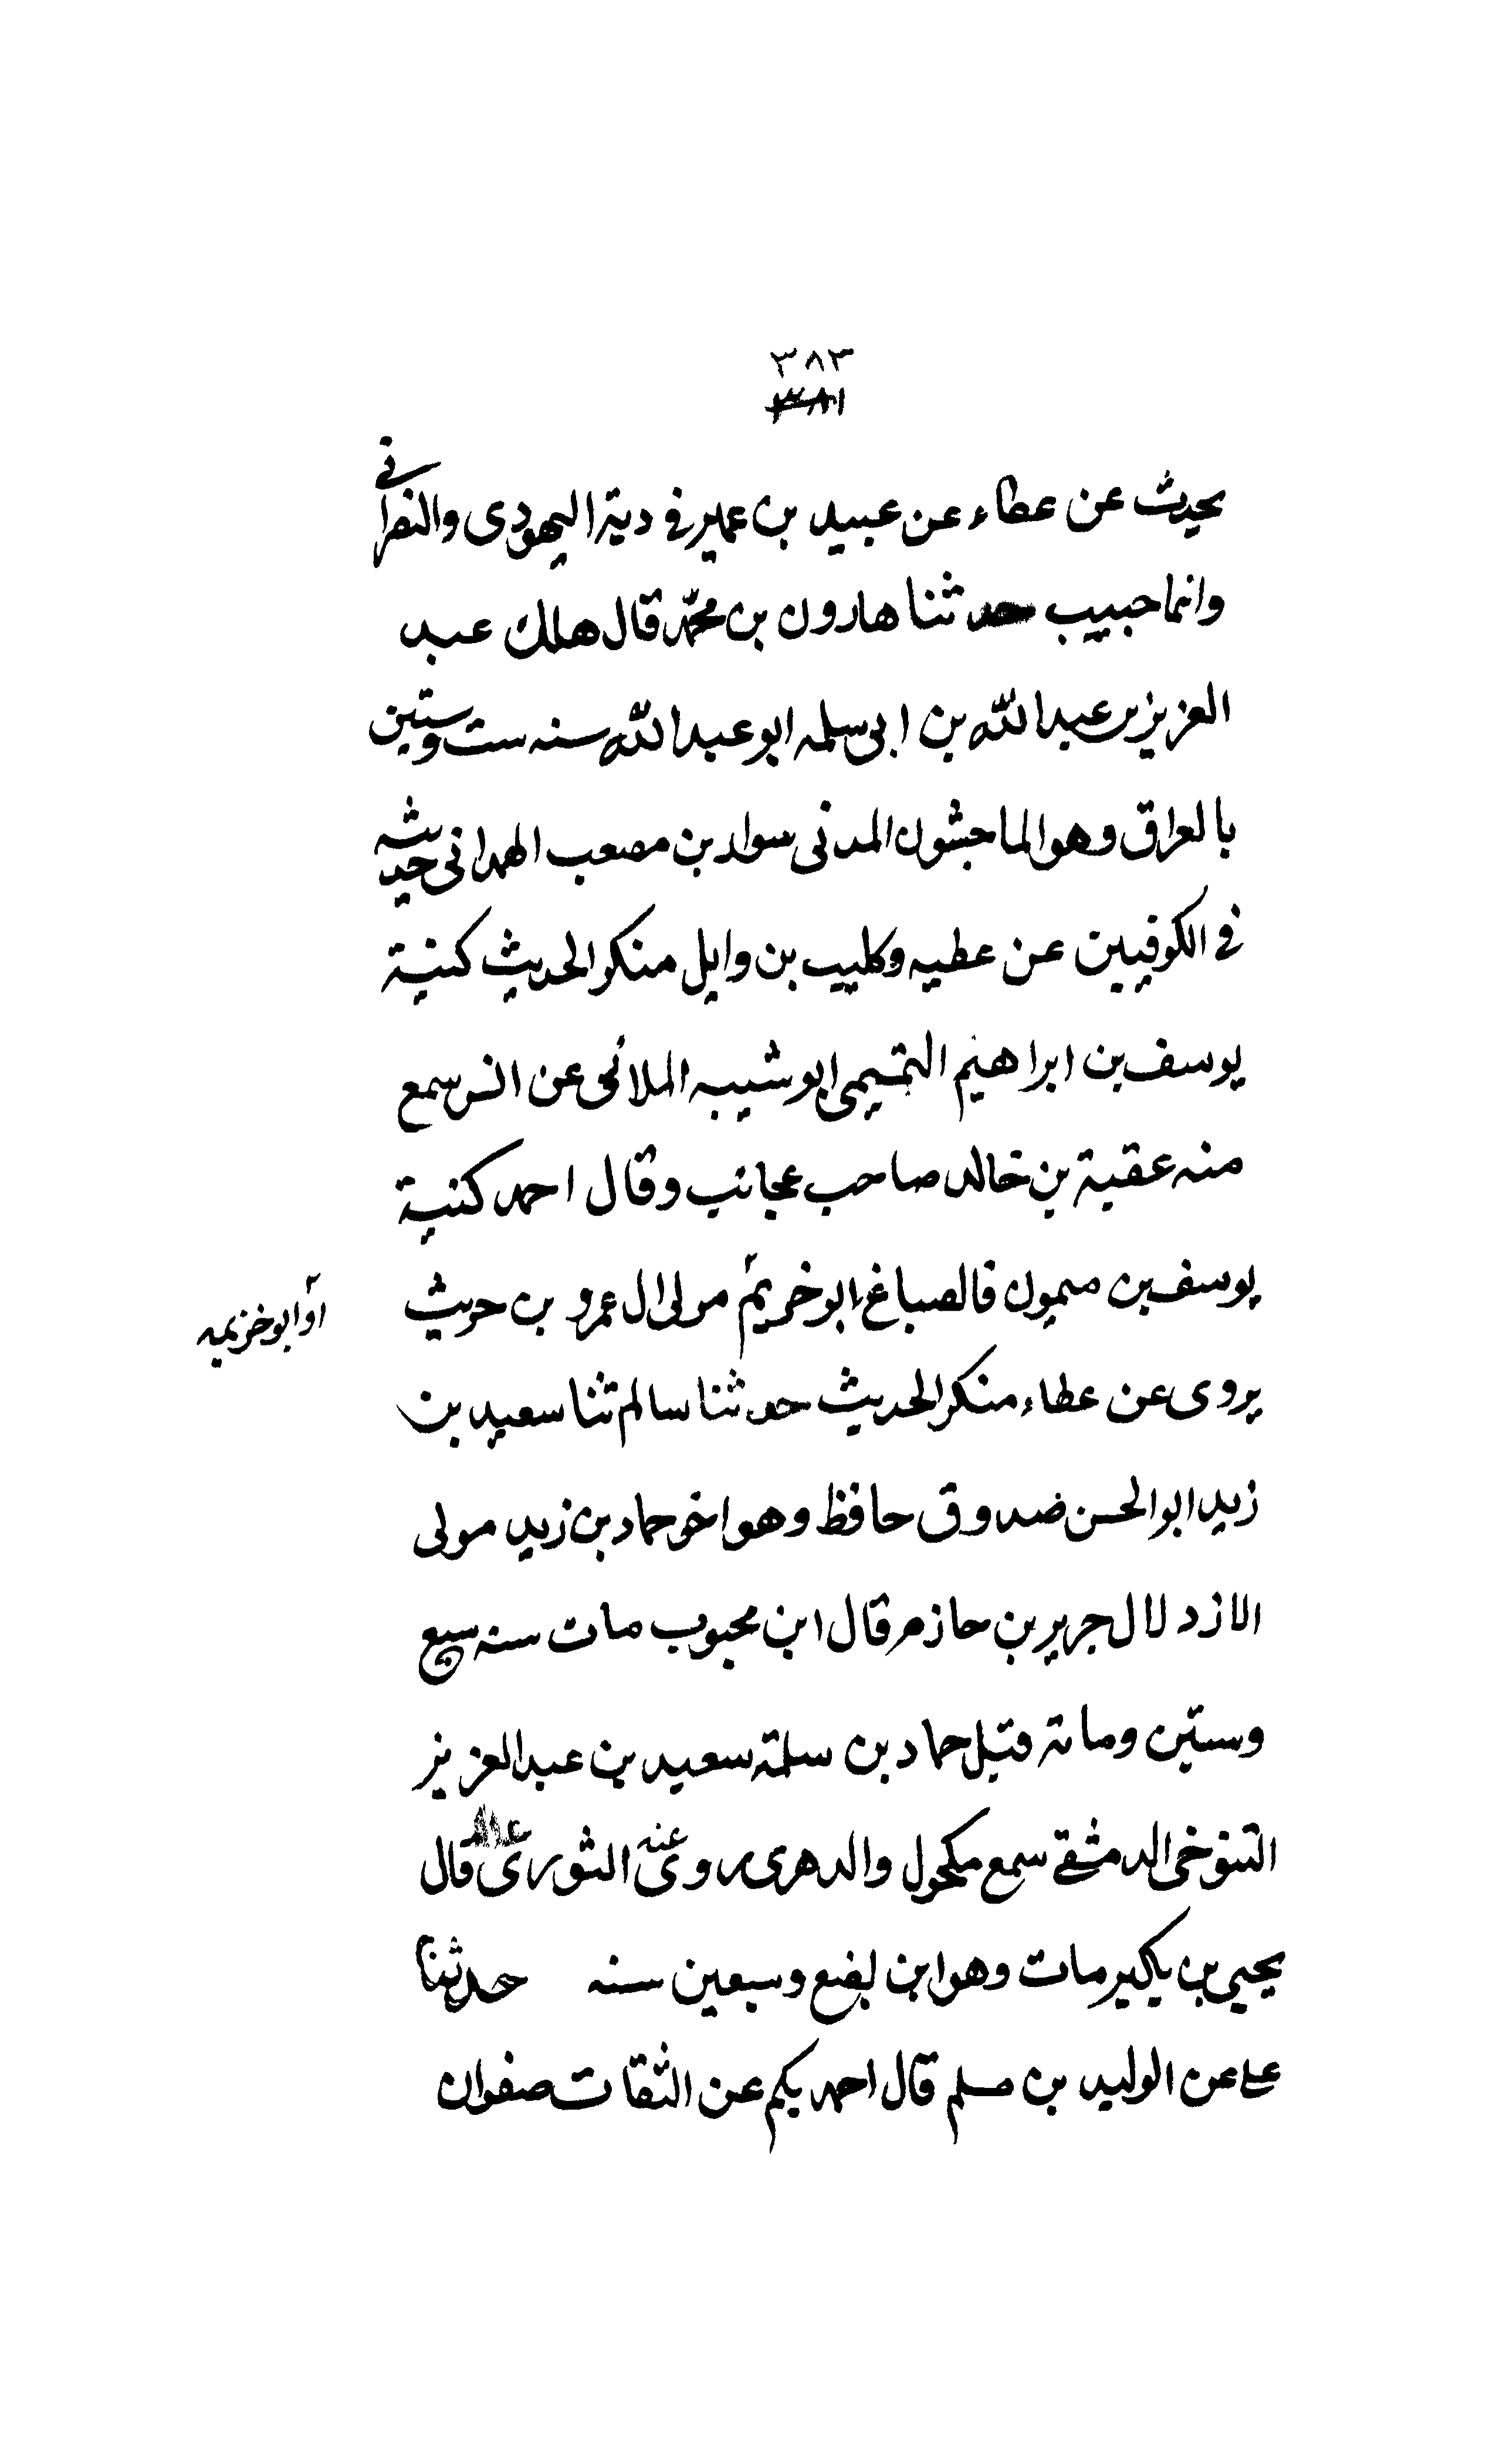 ٣٨٣
٣٨١
يحدث عن عطاء عن عبيد بن عمير في دية اليهودى والنصرانى
وانما حبيب حدثنا هارون بن محمد قال هلك عبد
العزيز بن عبد الله بن ابى سلمه ابو عبد الله سنه ست وستين
بالعراق وهو الماجشون المدنى سواد بن مصعب الهمدانى حديثه
فى الكوفيين عن عطيه وكليب بن وايل منكر الحديث كنية
يوسف بن ابراهيم التميمى ابو شيبه الملائى عن انس سمع
منه عقبة بن خالد صاحب عجائب وقال احمد كنية
يوسف بن ميمون قالصباغ ابو خريم مولى ال عمرو بن حريث
او ابو خزيمه
يروى عن عطاء منكر الحديث حدثنا سالم ثنا سعيد بن
زيد ابو الحسن صدوق حافظ وهو اخو حماد بن زيد مولى
الازد لال جرير بن حازم قال ابن محبوب مات سنه سبع
وستين ومائة قبل حماد بن سلمة سعيد بن عبد العزيز
التنوخى الدمشقى سمع مكحول والدهرى روى عنه الثورى قال
يحيى بن بكير مات وهو ابن بضع وسبعين سنه حدثنا
على عن الوليد بن مسلم قال احمد يكم عن الثقات صفوان